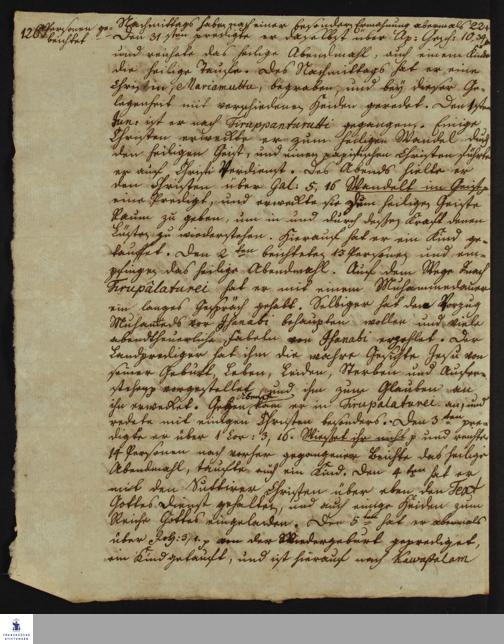 126 Personen ge- Nachmittags haben nach einer besondern Ermahnung abermals 22.
beichtet Den 31sten predigte er daselbst über Ap: Gesch: 10,
und reichete das heilige Abendmahl, auch einem Kinde
die heilige Taufe. Des Nachmittags hat er eine
Christin, Mariamutta, begraben, und bey dieser Ge-
legenheit mit verschiedenen Heiden geredet. Den 1sten
Jun: ist er nach Tiruppanturutti gegangen. Einige
Christen erweckte er zum heiligen Wandel durch
den heiligen Geist, und einen papistischen Christen führte
er auf Christi Verdienst. Des Abends hielte er
den Christen über Gal: 5, 16 Wandelt im Geiste
eine Predigt, und erweckte sie zum heiligen Geiste
Raum zu geben, um in und durch dessen Kraft denen
Lüsten zu wiederstehen. Hierauf hat er ein Kind ge-
tauffet. Den 2ten beichteten 13 Personen und em-
pfingen das heilige Abendmahl. Auf dem Wege nach
Tirupálaturei hat er mit einem Muhammedaner
ein langes Gespräch gehabt. Selbiger hat den Vorzug
Muhameds vor Isanabi behaupten wollen und viele
abentheuerliche Fabeln von Isanabi erzehlet. Der
Landprediger hat ihm die wahre Geschichte Jesu von
seiner Geburt, Leben, Leiden, Sterben und Aufer-
stehung vorgestellet, und ihn zum Glauben an
ihn erwecket. Gegen Abend kam er in Tirupalaturei an, und
redete mit einigen Christen besonders. Den 3ten pre-
digte er über 1 Cor: 3, 16. Wisset ihr nicht p und reichte
14 Personen nach vorher gegangener Beichte das heilige
Abendmahl, tauffte auch ein Kind. Den 4ten hat er
mit den Christen über eben den Text
Gottes Dienst gehalten, und auch einige Heiden zum
Reiche Gottes eingeladen. Den 5ten hat er abermals
über Joh: 3, p von der Wiedergeburt geprediget,
ein Kind getauft, und ist hierauf nach Kawastalam
FRANCKESCHE
STIFTUNGEN